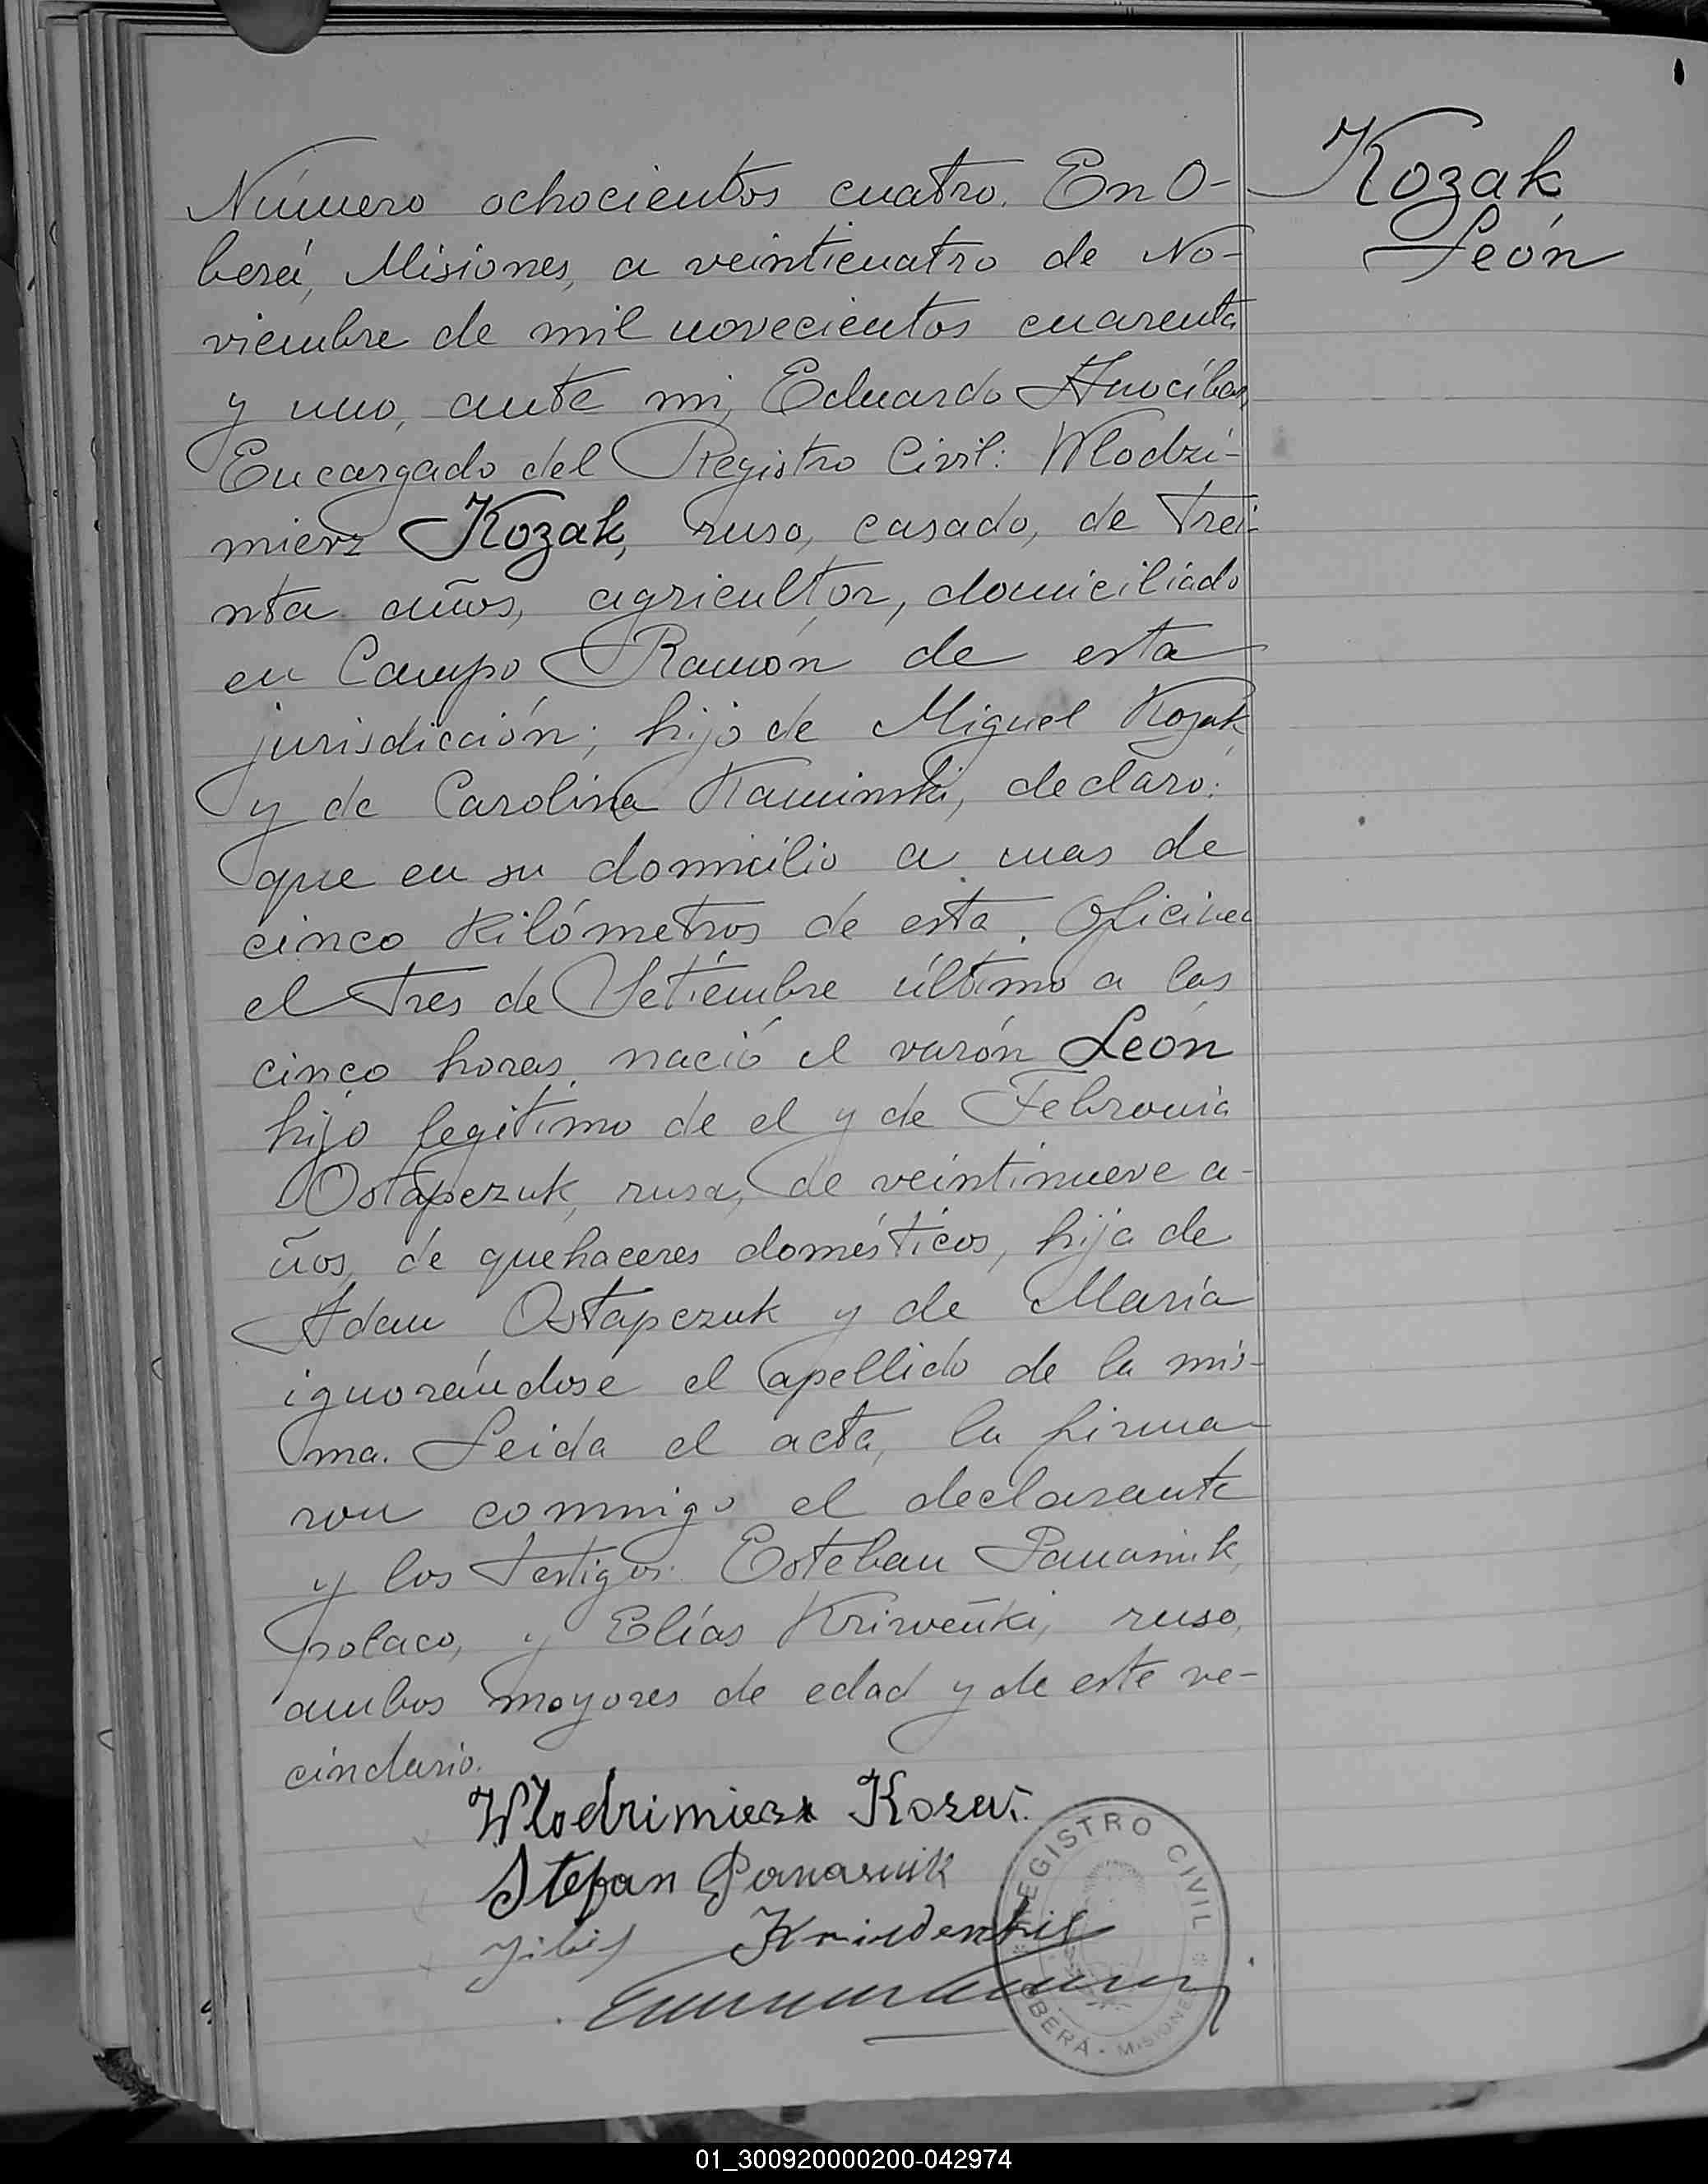 Kozak
León
Número ochocientos cuatro. En O-
berá, Misiones, a veinticuatro de No-
viembre de mil novecientos cuarenta
y uno, ante mi, Eduardo
Encargado del Registro Civil: Wlodzi-
mierz Kozak, ruso, casado, de trei-
nta años, agricultor, domiciliado
en Campo Ramón de esta
jurisdicción; hijo de Miguel Kozak
y de Carolina Kaminski, declaro:
que en su domicilio a mas de
cinco kilómetros de esta Oficina
el tres de Setiembre último a las
cinco horas nació el varón León
hijo legitimo de el y de Febronia
Ostapczuk, rusa, de veintinueve a-
ños, de quehaceres domésticos, hija de
Adan Ostapczuk y de María
ignorándose el apellido de la mis-
ma. Leida el acta, la firma-
ron conmigo el declarante
y los testigos: Esteban Panasiuk,
polaco, y Elías Kriweñki, ruso,
ambos mayores de edad y de este ve-
cindario.
Wlodzimierz
Stefan Panasiuk
REGISTRO CIVIL
OBERÁ - MISIONES
01_300920000200-042974